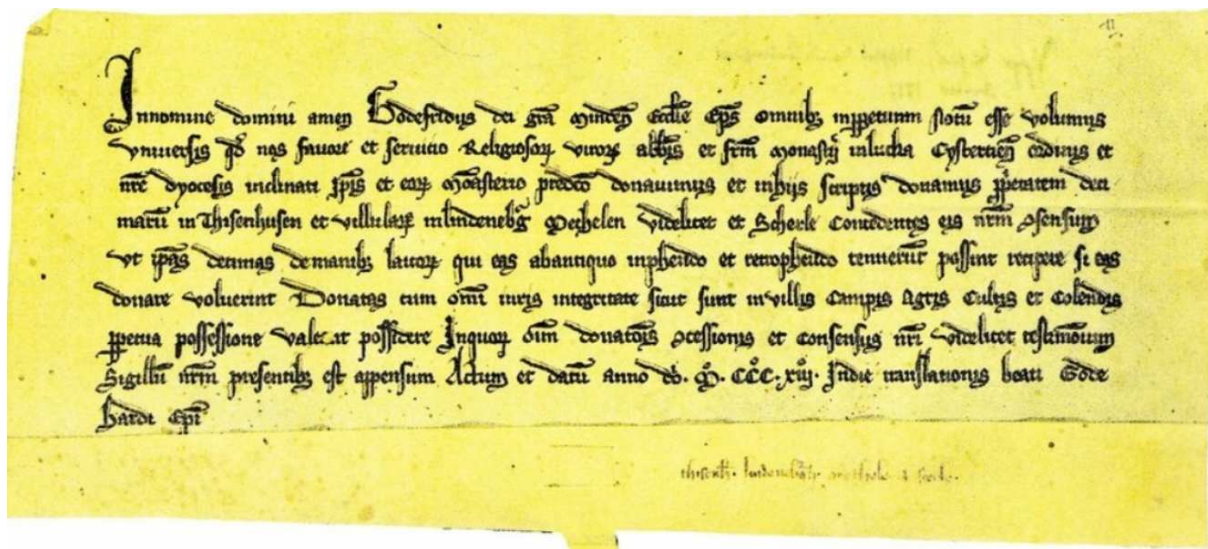 In nomine domini amen Godefridus dei gra Minden Ecclie Eps omnibz inperpetuum Notu esse volumus
universis qd nos favore et servicio Religiosor viror abbis et frm Monastij inlucka Cystercien ordinis et
nre dyocesis inclinati ipis et eor Monasterio predco donavimus et inhijs scriptis donamus pprietatem deci
maru in Thisenhusen et villular inlindenebg Methelen videlicet et Scherle Concedentes eis nrm 9sensum
ut ipas decimas demanibz laicor qui eas abantiquo inpheudo et retropheudo tenuerut possint recipere si eas
donare voluerint Donatas cum omi iuris integritate sicut sunt invillis Campis Agris Cultis et Colendis
ppetua possessione valeant possidere Inquor oim donatois 9cessionis et consensus nri videlicet testimonium
Sigillu nrm presentibz est appensum Actum et datu anno do. Mo. CCCo. xiijo. Indie translationis beati Gode
hardi Epi
thisenh. lindenebgh. methele et scerle.